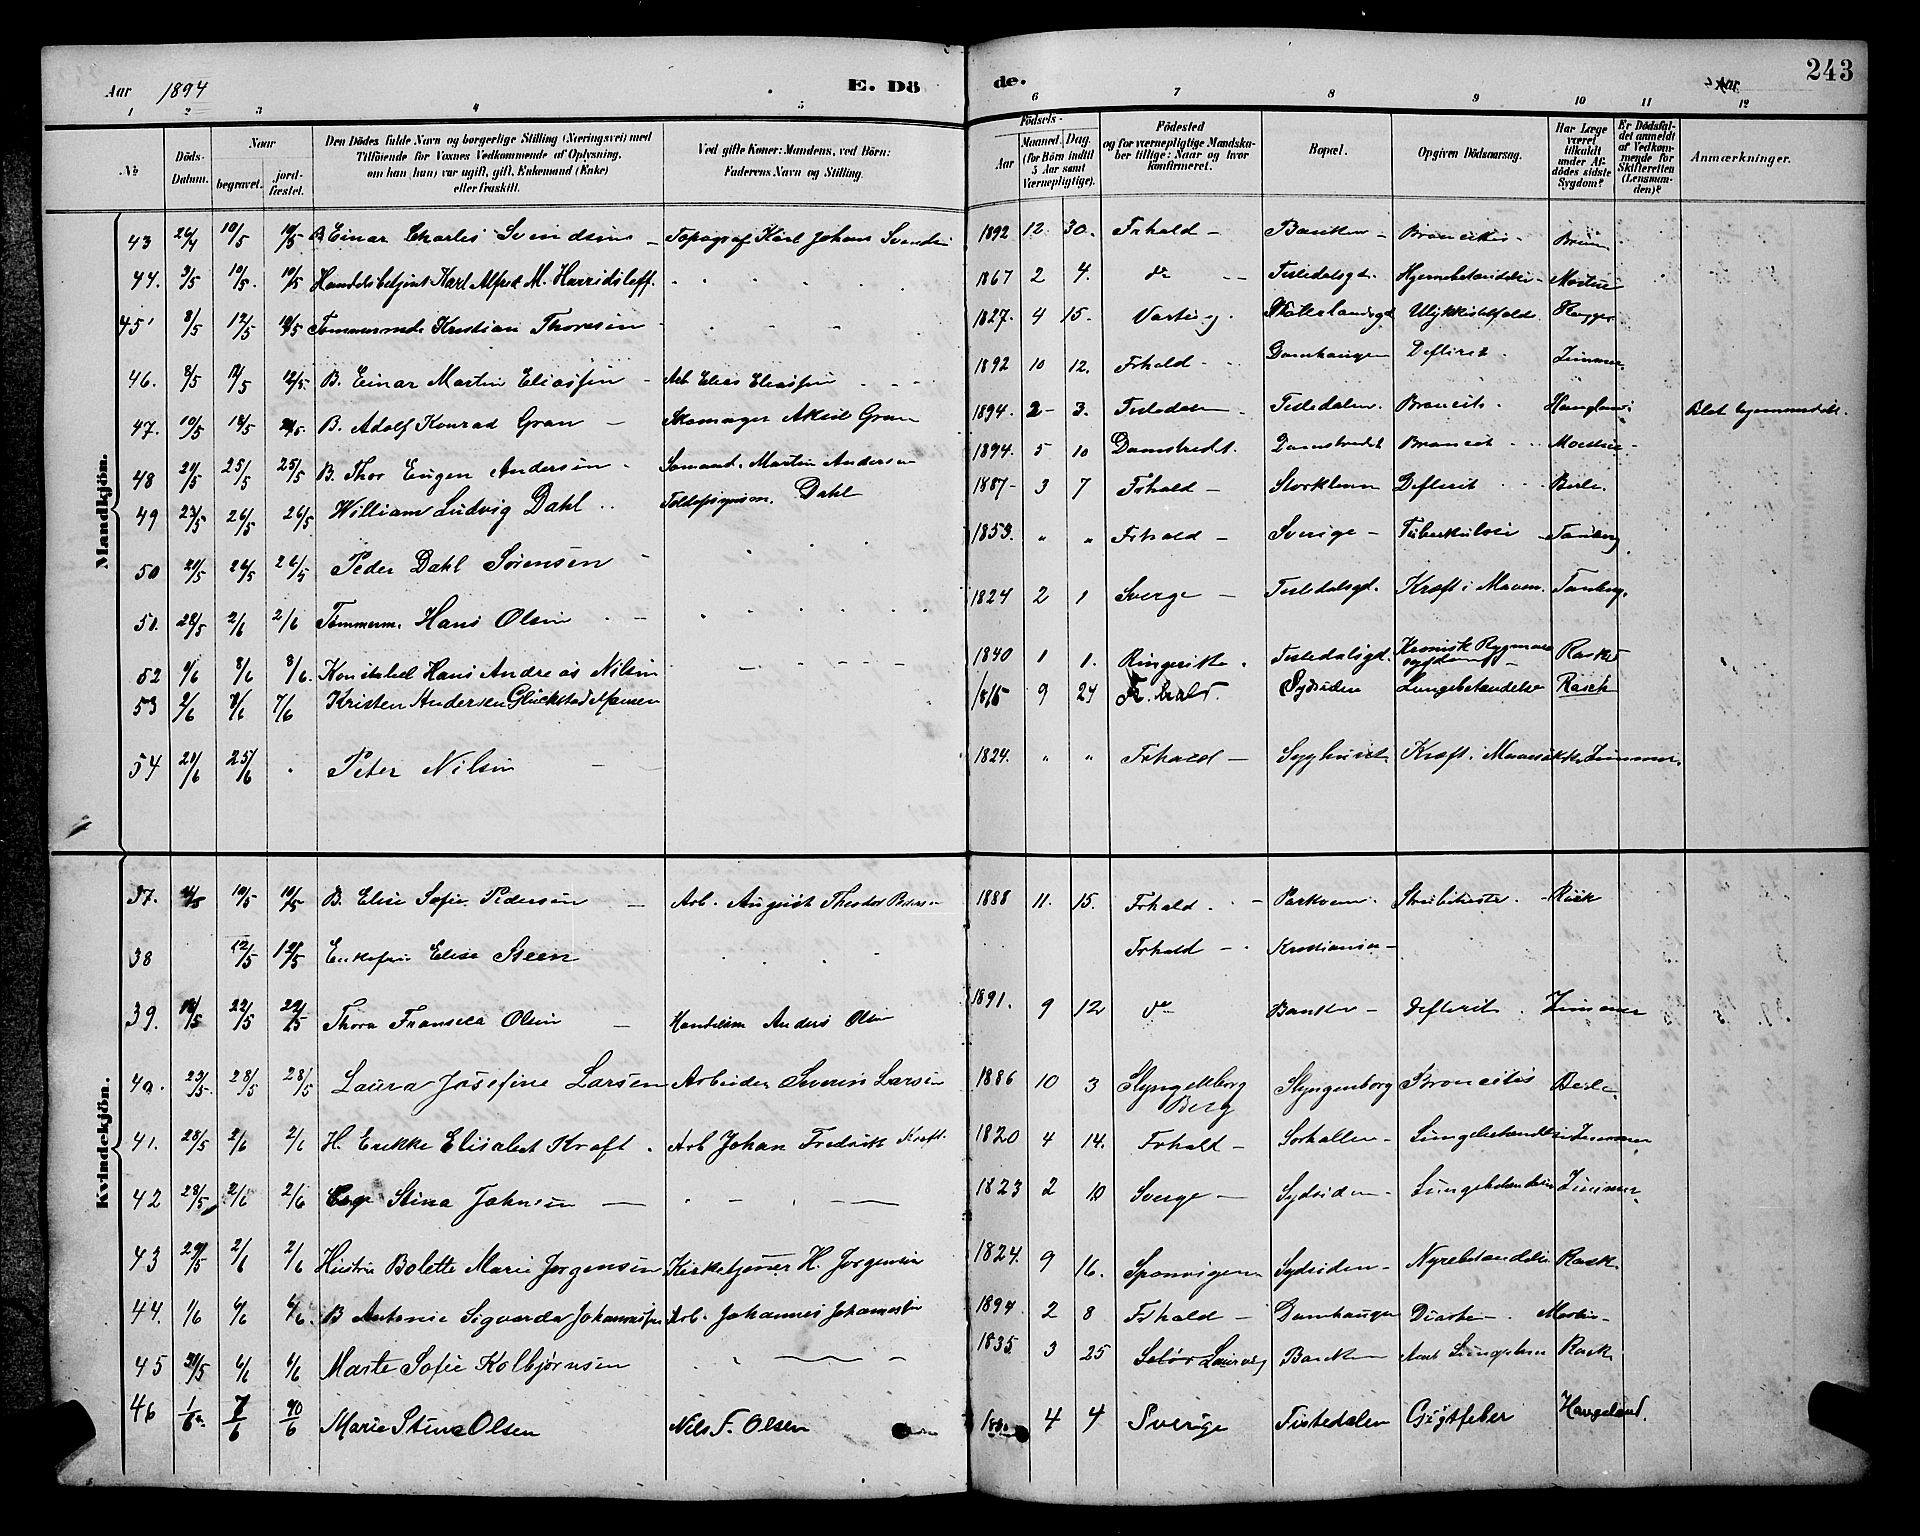 Aar 1894 E. Dö
1 2 3 4 5
№ Döds-Datum. Naar begravet. jordfæstet. Den Dödes fulde Navn og borgerlige Stilling (Næringsvei) med Tilföiende for Voxnes Vedkommende af Oplysning, om han (hun) var ugift, gift, Enkemand (Enke) eller fraskilt. Ved gifte Koner: Mandens, ved Börn: Faderens Navn og Stilling.
Mandkjön.
43 26/4 10/5 10/5 B. Einar Charles Svendsen – Topograf Karl Johans Svendsen
44. 3/5 10/5. 10/5 Handelsbetjent Karl Alfred M.
45 8/5 12/5 12/5 Tømmermd. Kristian Thoresen
46. 8/5 12/5 12/5. B. Einar Martin Eliassen – Arb Elias Eliassen
47. 10/5 18/5 B. Adolf Konrad Gran – Skomager Aksel Gran
48 21/5 25/5 25/5 B. Thor Eugen Andersen – Sømand. Martin Andersen
49 23/5 26/5 26/5 William Ludvig Dahl Dahl
50 21/5 26/5 26/5 Peder Dahl Sørensen –
51. 28/5 2/6 2/6 Tømmerm. Hans Olsen
52 4/6 8/6 8/6. Konstabel Hans Andreas Nilsen
53 2/6 7/6 7/6 Kristen Andersen Glückstad Hansen
54 21/6 25/6 Peter Nilsen
Kvindekjön.
37. 4/5 10/5 10/5 B. Elise Sofie Pedersen – Arb. August Theodor Pedersen
38 12/5 12/5 Enkefru Elise Steen
39. 18/5 22/5 22/5 Thora Fransisca Olsen – Handelsm Anders Olsen
40. 23/5. 28/5 28/5 Laura Josefine Larsen Arbeider Severin Larsen
41. 28/5 2/6 2/6 H. Erikke Elisabet Kraft. Arb Johan Fredrik Kraft.
42 28/5 2/6 2/6 Stina Johnsen –
43 29/5 2/6 2/6 Hustru Bolette Marie Jørgensen Kirketjener H. Jørgensen
44. 1/6 4/6 4/6. B Antonie Sigvarda Johannessen Arb. Johannes Johannessen
45 31/5 6/6 6/6 Marte Sofie Kolbjørnsen
46 1/6 7/6 10/6 Marie Stine Olsen Nils F. Olsen
de. Aar 243
6 7 8 9 10 11 12
Födsels- Aar Maaned. Dag. (for Börn indtil 5 Aar samt Værnepligtige). Födested og for værnepligtige Mandskaber tillige: Naar og hvor konfirmeret. Bopæl. Opgiven Dödsaarsag. Har Læge været tilkaldt under Afdödes sidste Sygdom? Er Dödsfaldet anmeldt af Vedkommende for Skifteretten (Lensmanden)? Anmærkninger.
1892 12 30. Frhald – Banken – Broncitis –
1867 2 4. do – Tistedalsgd. Hjernebetændelse –
1827. 4 15. Varteig Ulykkestilfælde
1892 10 12. Frhald – Damhaugen Defterit. Zimmer.
1894. 2 – 3. Tistedalen. Tistedalen. Broncit. Haugland Blot hjemmedøbt.
1894. 5 10 Damstredet. Damstredet Broncit
1887 – 3 7 Frhald – Storkleven Defterit
1853. " " Frhald – Sverige – Tuberkulose Tanberg
1824 2 1 Sverge – Tistedalsgd. Kræft i Maven. Tanberg.
1840 1 1. Ringerike. Tistedalsgd. Kronisk Rygmarvssygdom – Rask
9 24 Fr.hald. Sydsiden Lungebetændelse Rasch
1824. " " Frhald – Sygehuset Kræft i Mavesækk. Zimmer.
1888 11. 15. Frhald. – Parkveien. Strubehoste.
Frhald – Kristiania –
1891. 9 12 do Banken – Defterit. Zimmer
1886 10 3 Berg Broncitis
1820 4 14. Frhald – Sorhallen – Lungebetændelse Zimmer
1823 2 10 Sverge – Sydsiden – Lungebetændelse Zimmer
1824. 9 16. Sponvigen Sydsiden – Nyrebetændelse Rask.
1894. 2 8 Frhald – Damhaugen Diarhe –
1835 3 25 Banken – Rask
4 4 Sverige Tistedalen Gigtfeber Haugeland.